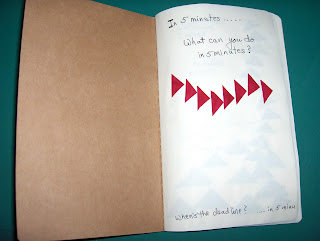 In 5 minutes .....
What can you do
in 5 minutes?
When's the deadline? .... in 5 minutes